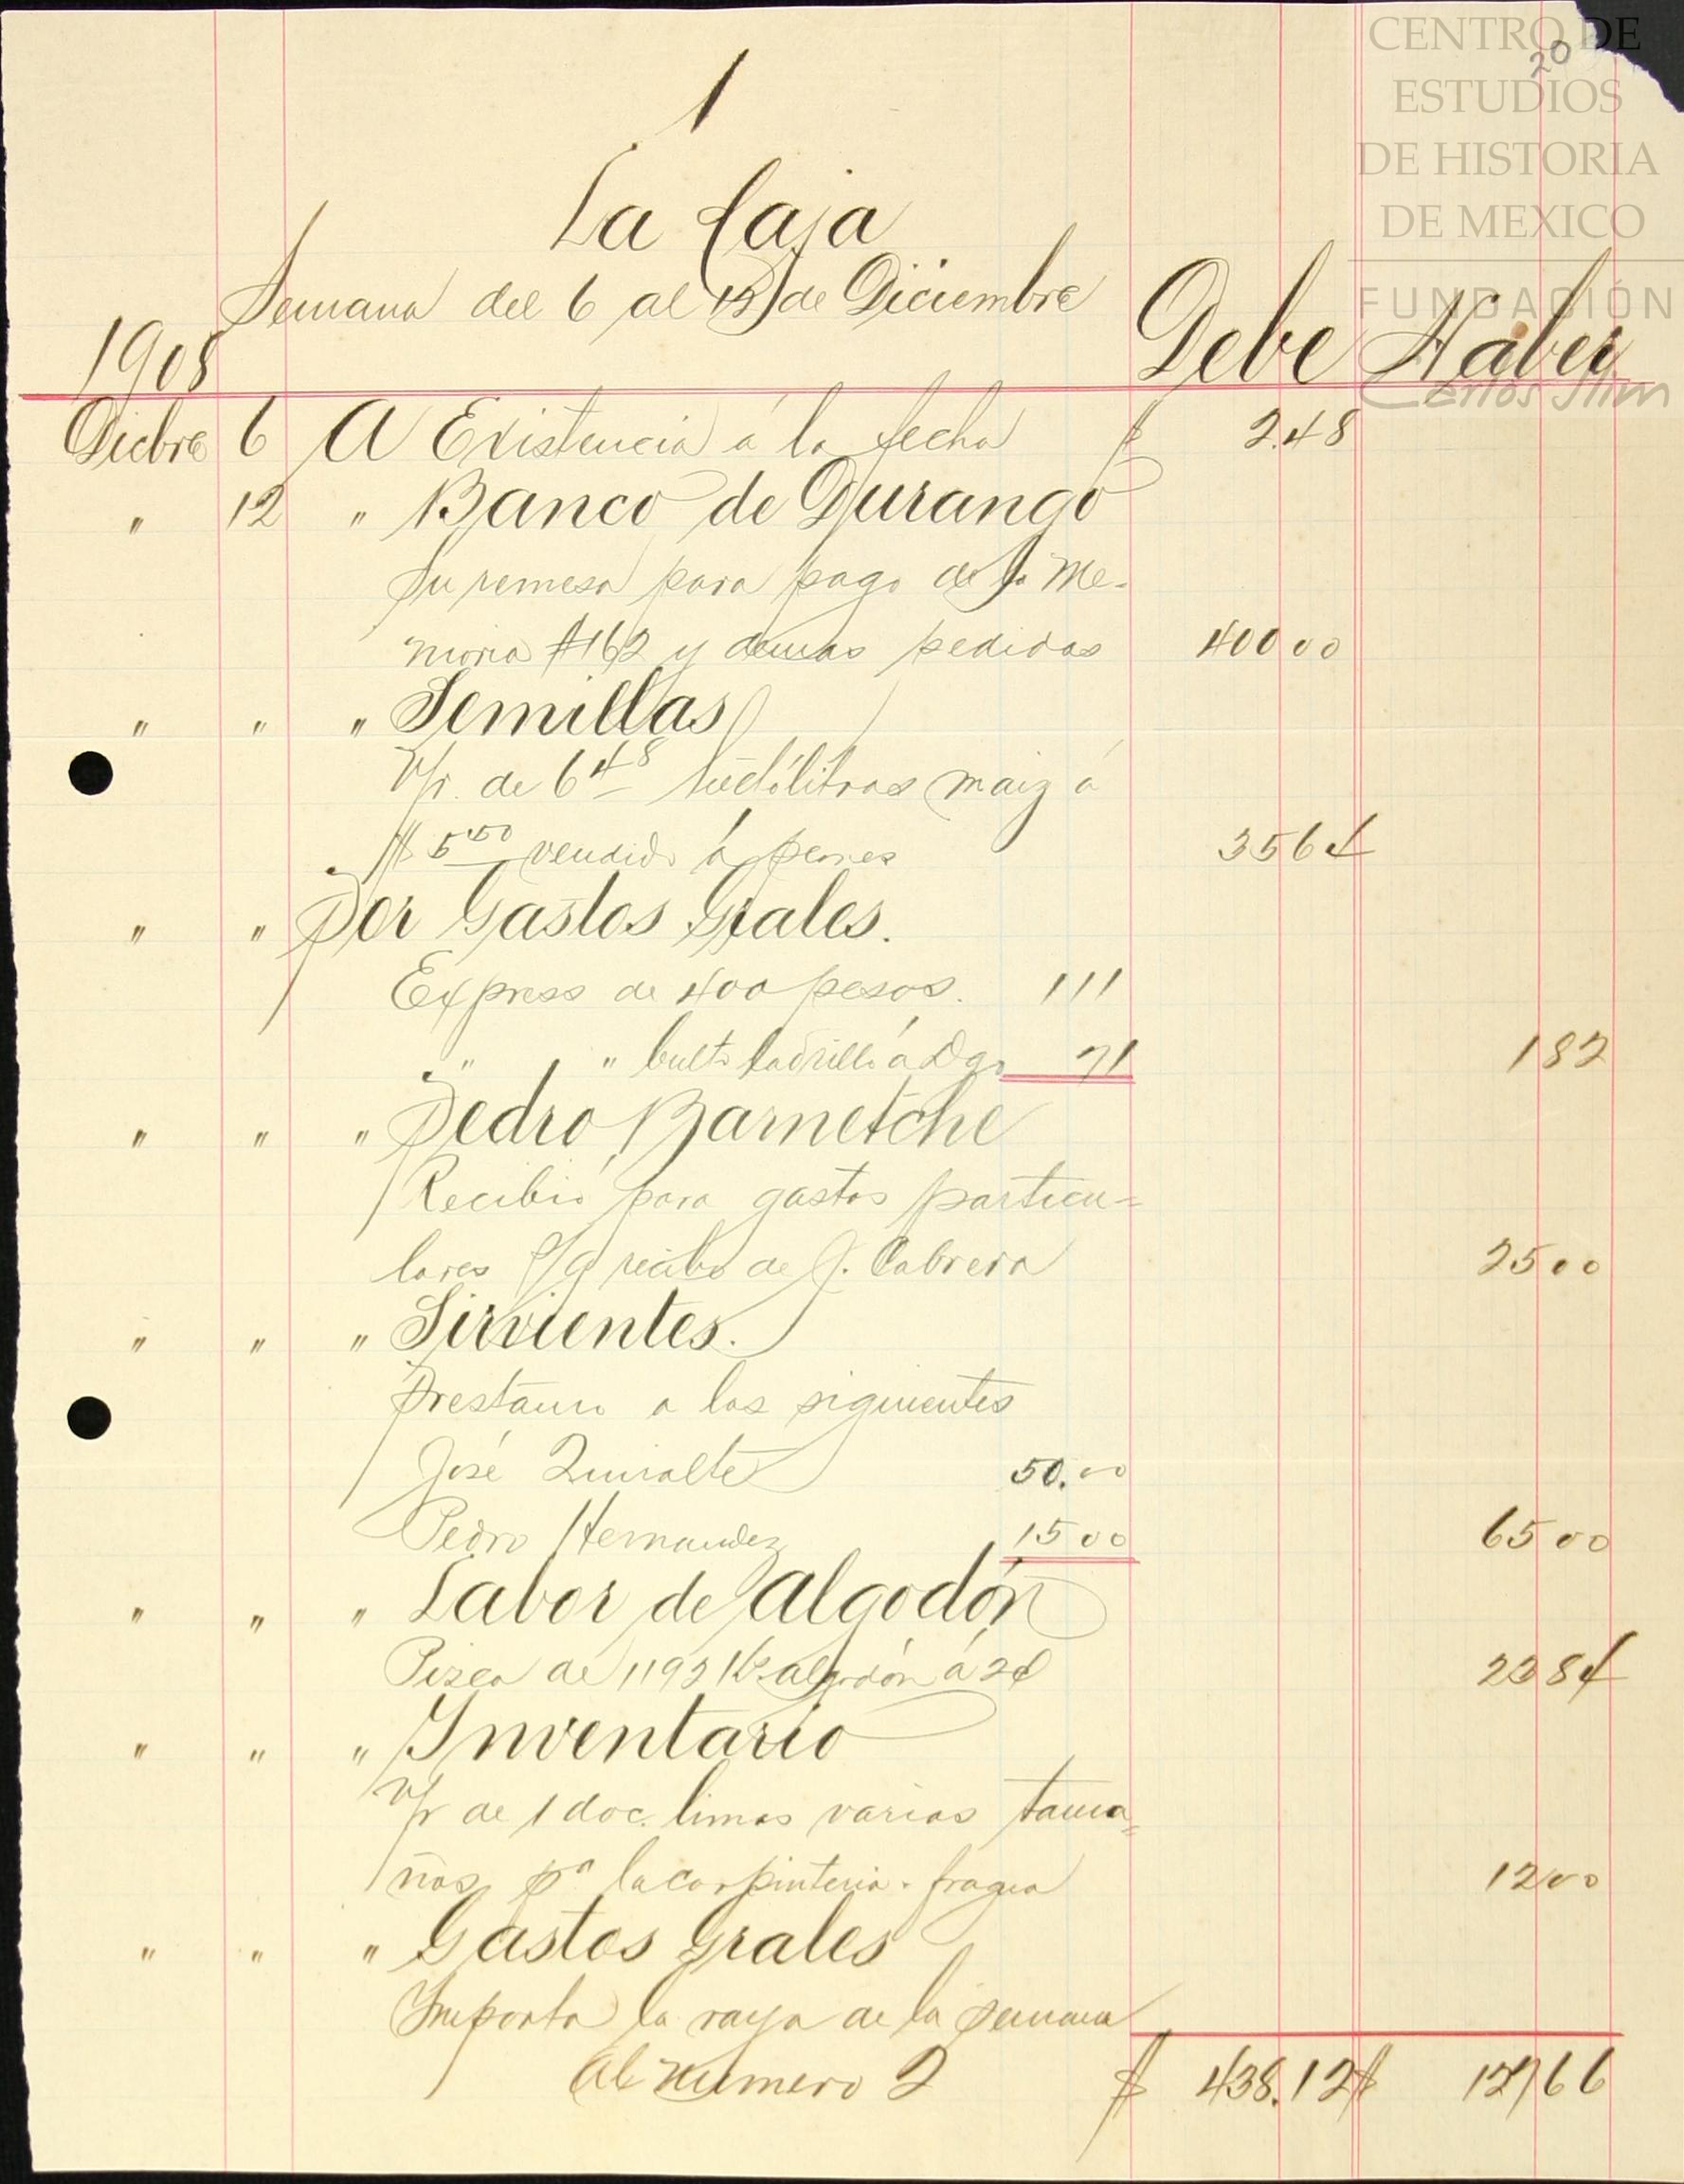 CENTRO DE
ESTUDIOS
DE HISTORIA
DE MEXICO
FUNDACIÓN
Carlos Slim
20
1
La Caja
Semana del 6 al 12 de Diciembre
1908 Debe Haber
Dicbre 6 A Existencia á la fecha $ 2.48
" 12 " Banco de Durango
Su remesa para pago de la Me-
moria #162 y demas pedidos 400 00
" " " Semillas
V/r. de 6 48 hectólitros maiz á
$ 5.50 vendido á peones 35 64
" " Por Gastos Grales.
Express de 400 pesos. 1 11
" " bulto ladrillo á Dgo 71 1 82
" " " Pedro Barnetche
Recibió para gastos particu-
lares s/g recibo de J. Cabrera 25 00
" " " Sirvientes.
Prestamo a los siguientes
José Zuvialte 50.00
Pedro Hernandez 15 00 65 00
" " " Labor de Algodón
Pizca de 1192 Ks. algodón á 2¢ 23 84
" " " Inventario
V/r de 1 doc. limas varios tama-
ños pa la carpinteria. fragua 12 00
" " " Gastos Grales
Importa la raya de la semana
Al numero 2 $ 438.12 $ 127 66